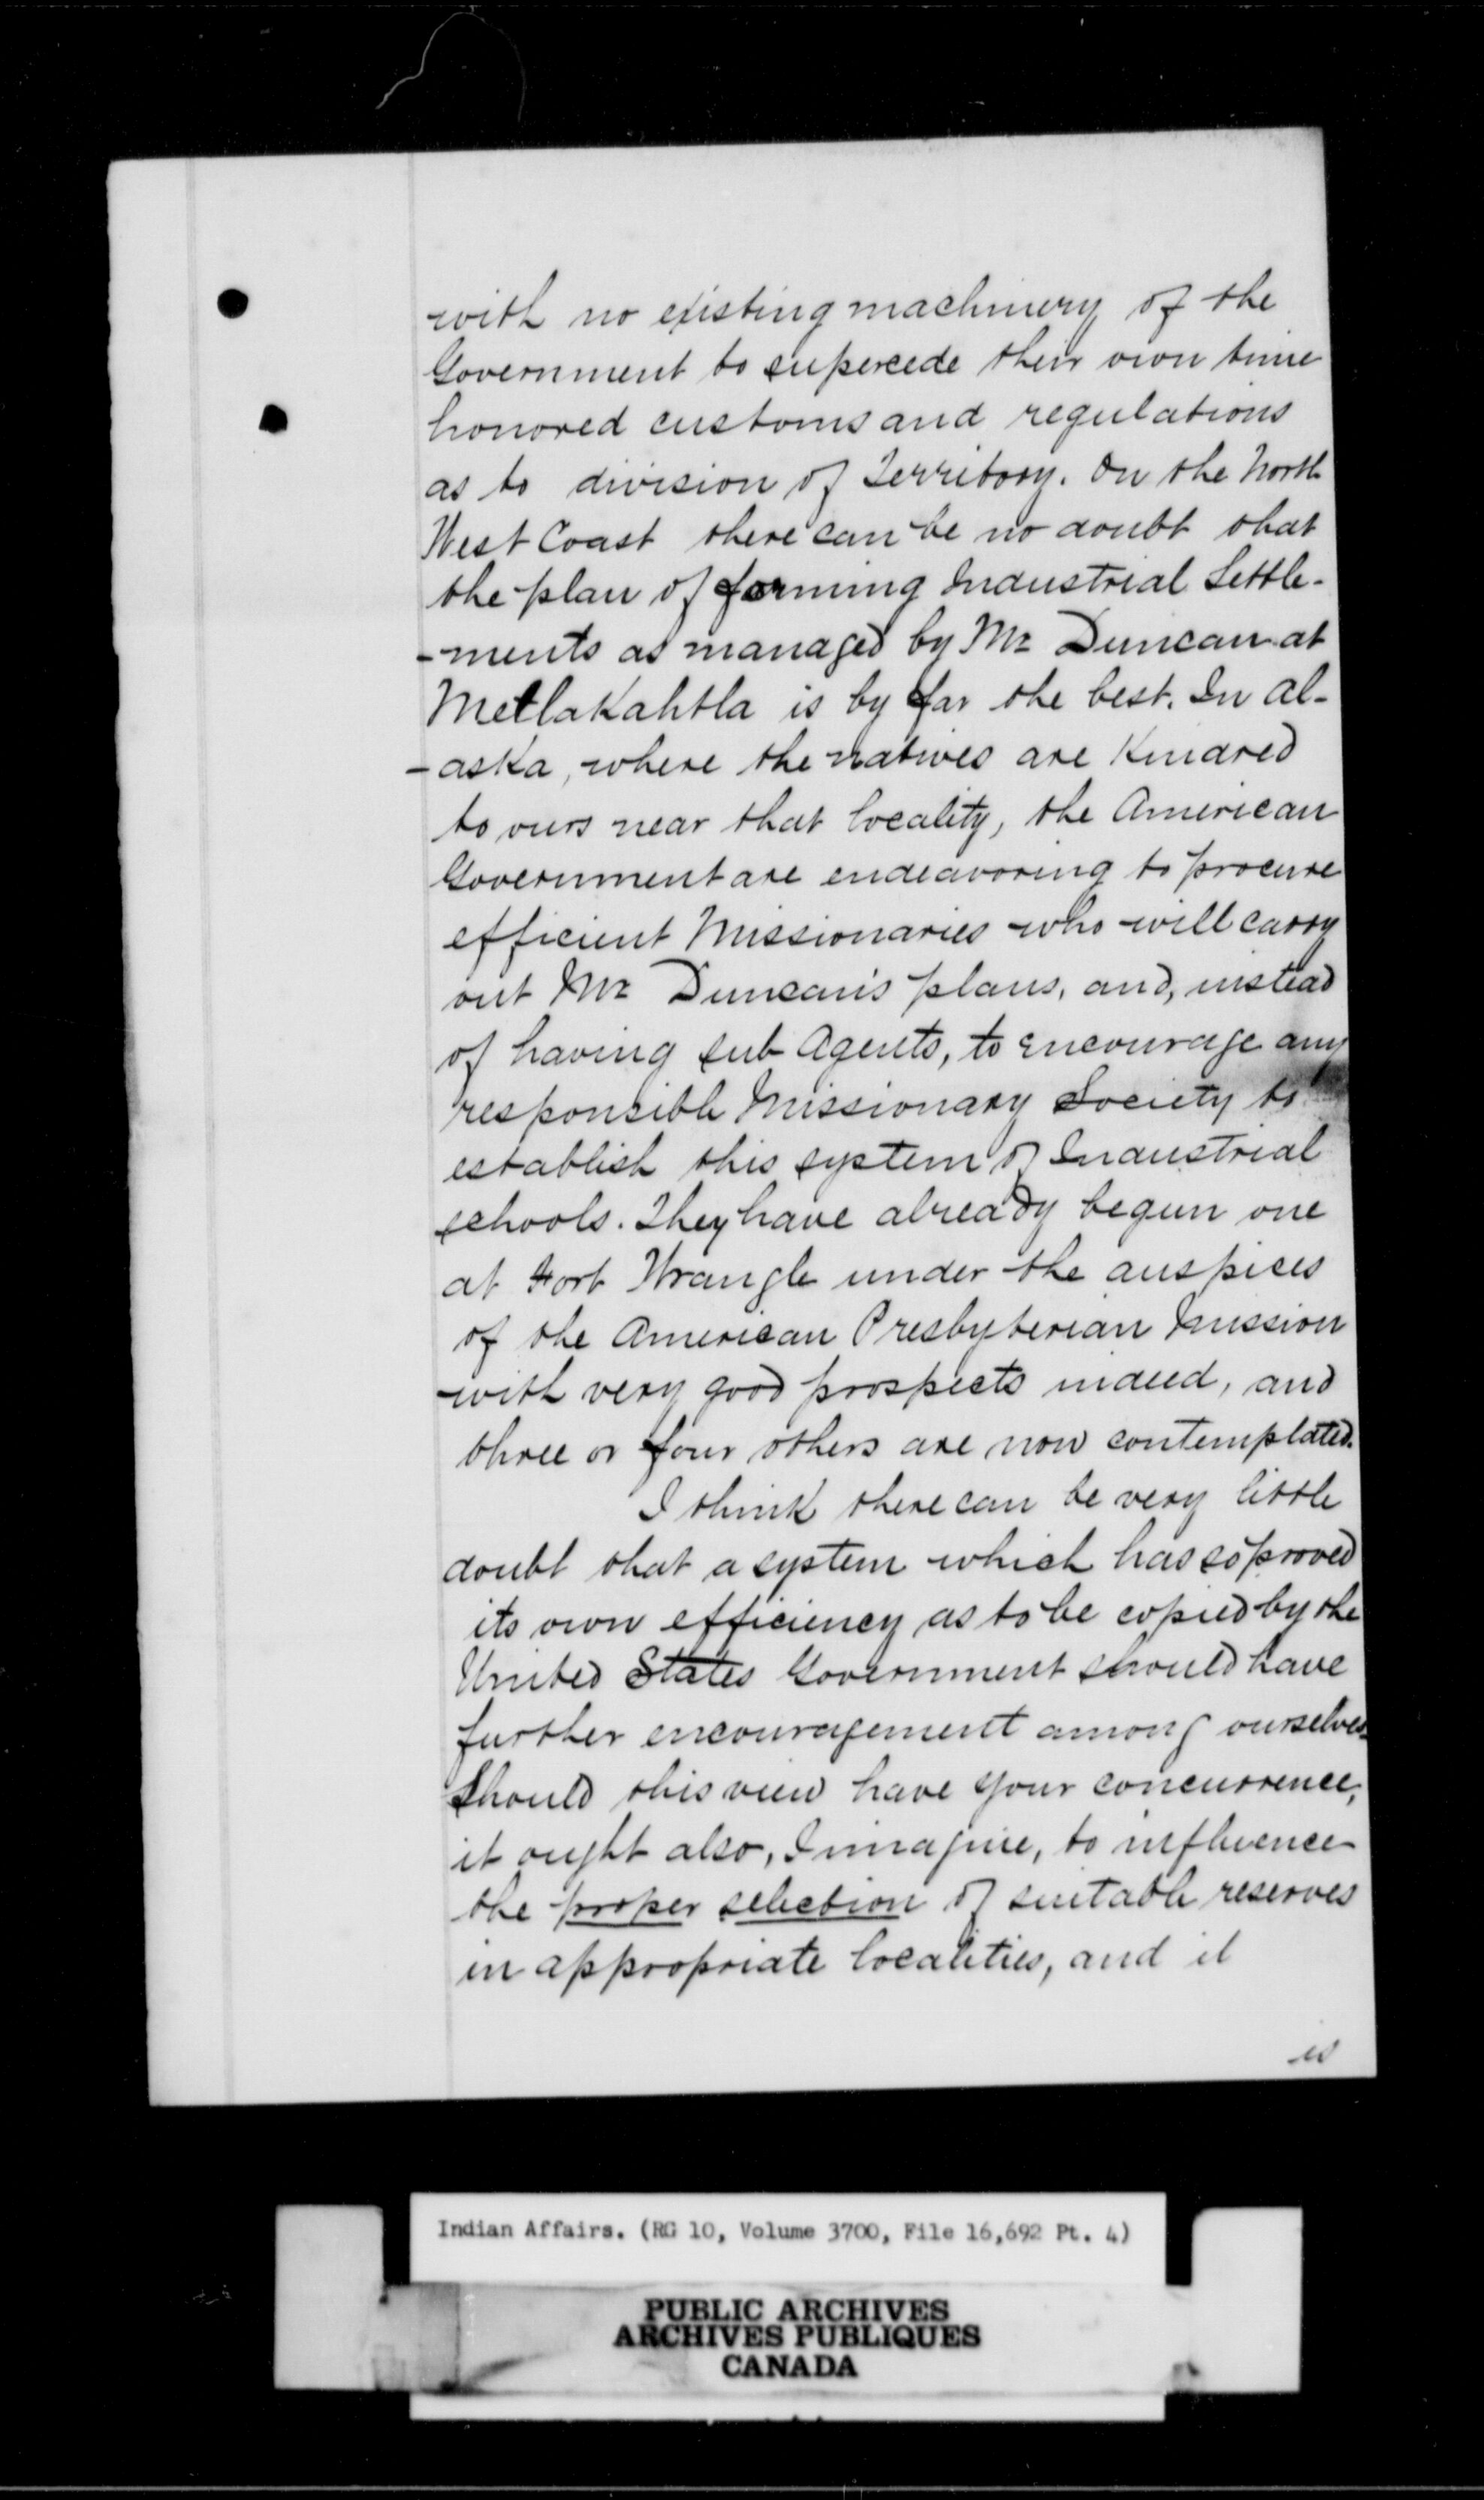 with no existing machinery of the
Government to supercede their own time
honored customs and regulations
as to division of Territory. On the North
West Coast there can be no doubt that
the plan of forming Industrial Settle-
-ments as managed by Mr Duncan at
Metlakahtla is by far the best. In Al-
-aska, where the natives are Kindred
to ours near that locality, the American
Government are endeavoring to procure
efficient Missionaries who will carry
out Mr Duncan's plans, and, instead
of having sub Agents, to encourage any
responsible Missionary Society to
establish this system of Industrial
schools. They have already begun one
at Fort Wrangle under the auspices
of the American Presbyterian Mission
with very good prospects indeed, and
three or four others are now contemplated.
I think there can be very little
doubt that a system which has so proved
its own efficiency as to be copied by the
United States Government should have
further encouragement among ourselves.
Should this view have your concurrence,
it ought also, I imagine, to influence
the proper selection of suitable reserves
in appropriate localities, and it
is
Indian Affairs. (RG 10, Volume 3700, File 16,692 Pt. 4)
PUBLIC ARCHIVES
ARCHIVES PUBLIQUES
CANADA